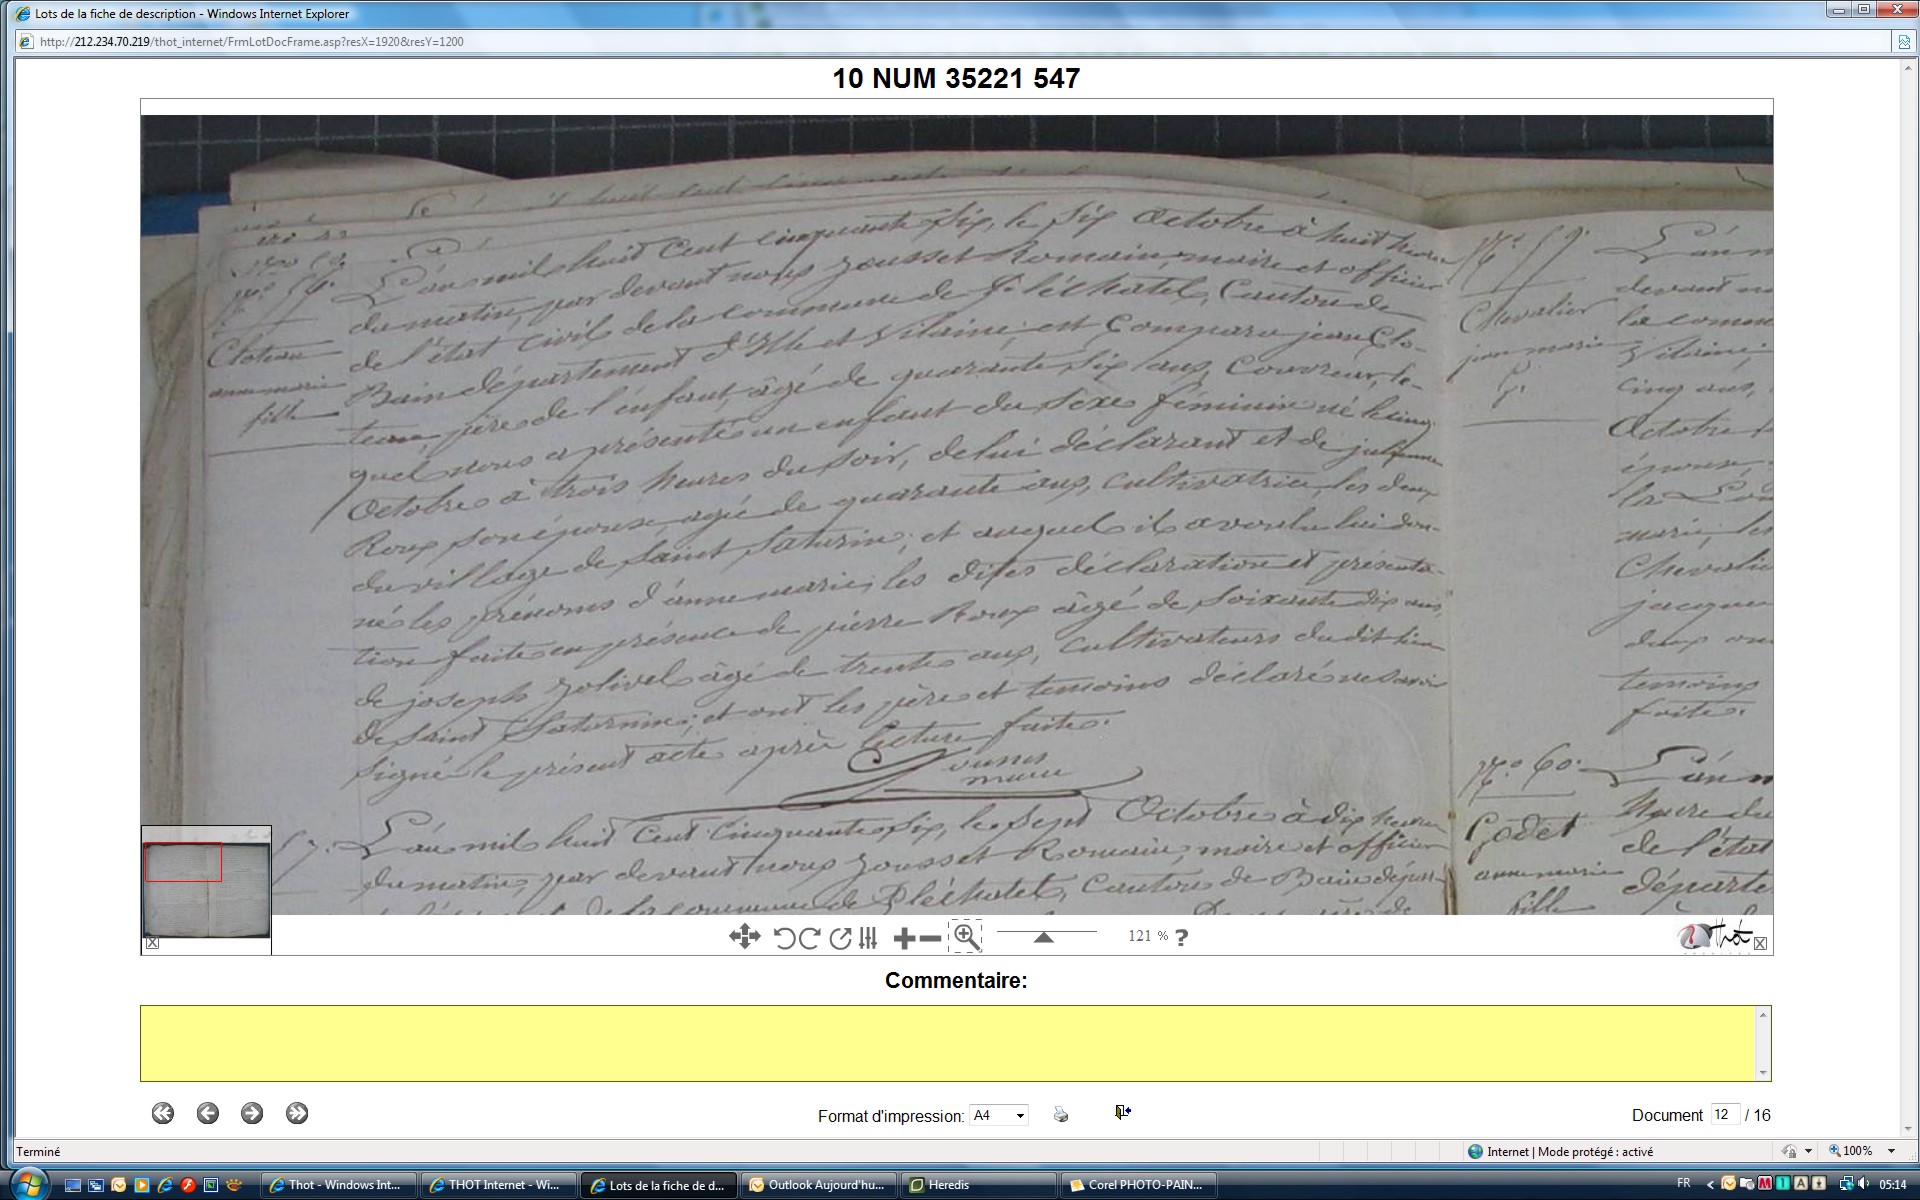 Lots de la fiche de description - Windows Internet Explorer
http://212.234.70.219/thot_internet/FrmLotDocFrame.asp?resX=1920&resY=1200
10 NUM 35221 547
N.° 56.
Cloteau
anne marie
fille
L'an mil huit Cent Cinquante Six, le Six Octobre à huit heures
du matin, par devant nous Jousset Romain, maire et officier
de l'état Civil de la commune de Pléchatel, Canton de
Bain département d'Ille et Vilaine, est Comparu jean Clo-
teau, père de l'enfant, âgé de quarante Six ans, Couvreur, le-
quel nous a présenté un enfant du Sexe féminin né le cinq
Octobre à trois heures du Soir, de lui déclarant et de julienne
Roux son épouse, agée de quarante ans, cultivatrice, les deux
du village de Saint Saturnin; et auquel il a voulu lui don-
né les prénoms d'anne marie, les dites déclaration et présenta-
tion faite en présence de pierre Roux âgé de Soixante dix ans,
de joseph Jolivel âgé de trente ans, cultivateurs du dit lieu
de Saint Saturnin; et ont les père et temoins déclaré ne Savoir
Signé le présent acte après lecture faite.
Jousset
maire
57.
L'an mil huit Cent Cinquante Six, le Sept Octobre à dix heures
du matin, par devant nous Jousset Romain, maire et officier
de la commune de Pléchatel, Canton de Bain dépar-
N.° 59.
Chevalier
jean marie
G.
L'an m
devant no
la comm
Vilaine,
cinq ans,
Octobre
épouse,
marie, les
Chevalie
jacques
deux an
temoins
faite.
N.° 60.
Godet
anne marie
fille
L'an m
heure du
de l'état
départe
121 %
?
Thot
Commentaire:
Format d'impression: A4
Document 12 / 16
Terminé
Internet | Mode protégé : activé
100%
Thot - Windows Int...
THOT Internet - Wi...
Lots de la fiche de d...
Outlook Aujourd'hu...
Heredis
Corel PHOTO-PAIN...
FR
05:14